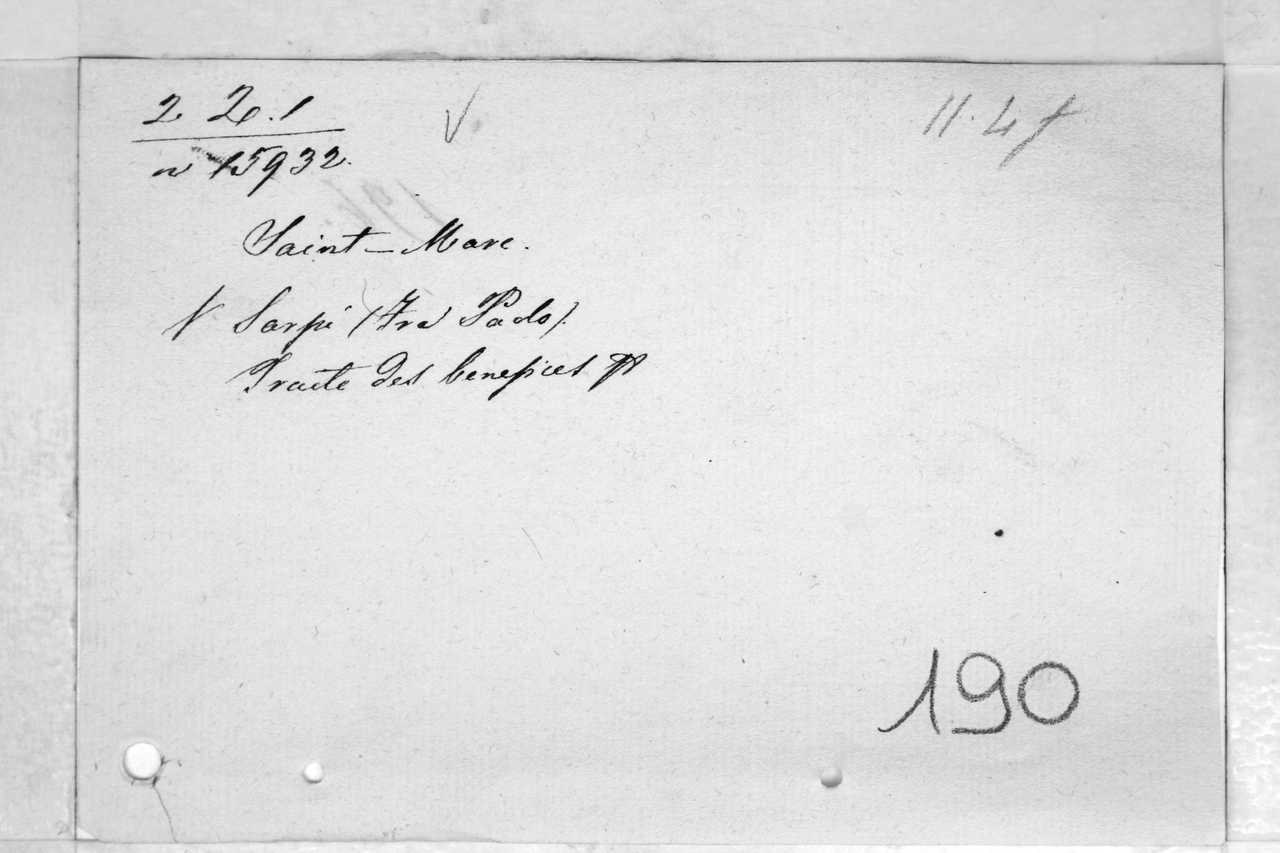 2 2.1
n 15932.
11.4 f
Saint-Marc.
V Sarpi (Fra Paolo).
Traite des benefices
190